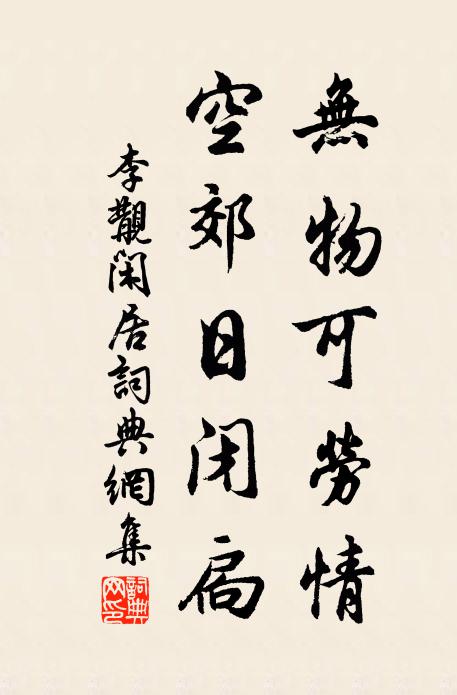 無物可勞情
空郊日閉扃
李覯閑居詞典網集
詞典网印